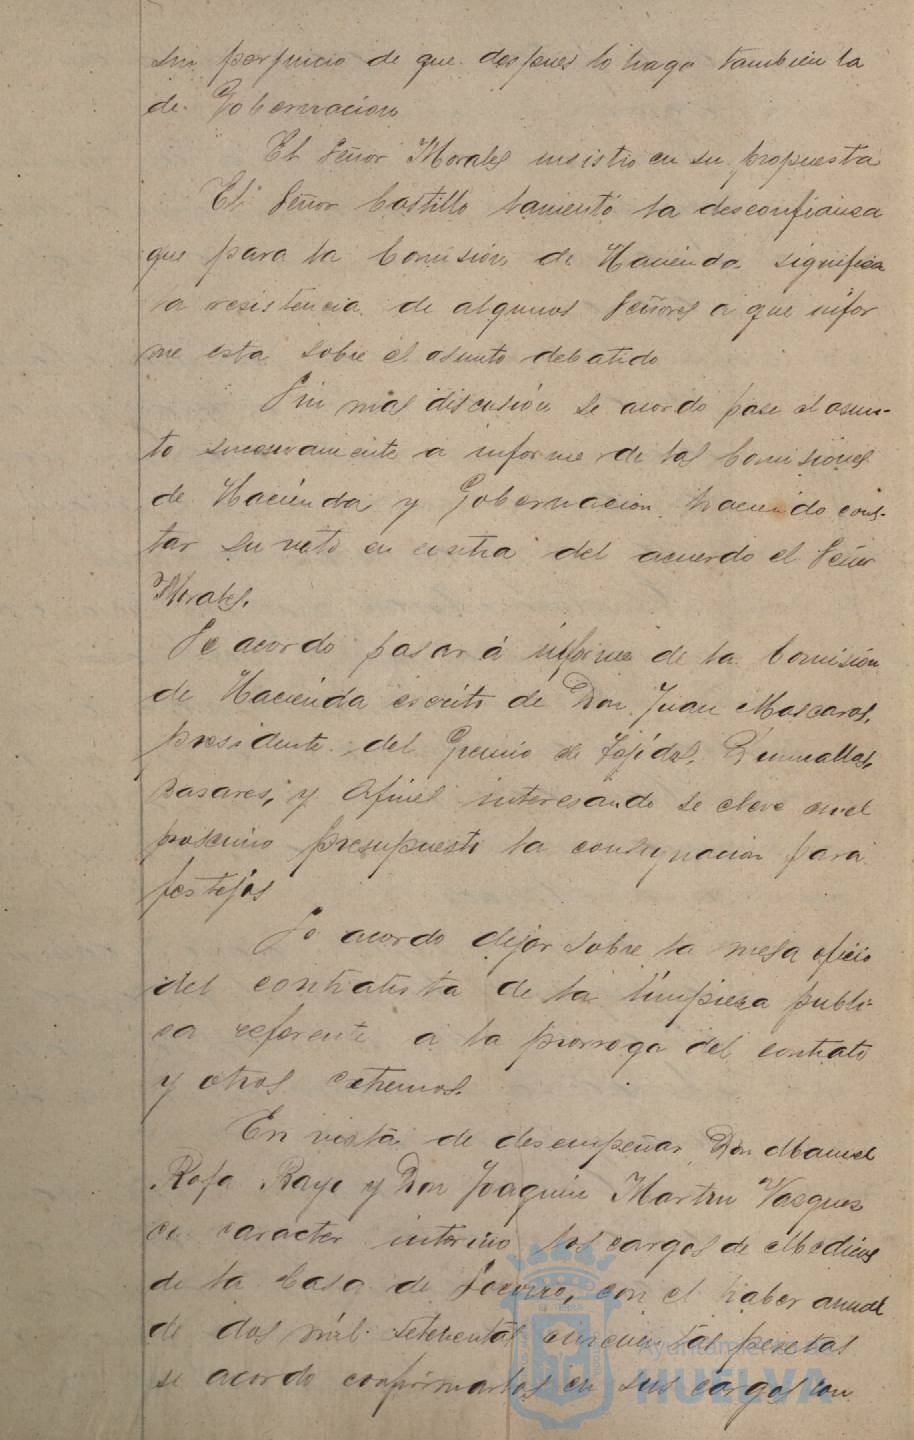 sin perjuicio de que despues lo haga tambien la
de Gobernacion
El Señor Morales insistio en su propuesta
El Señor Castillo lamentó la desconfianza
que para la Comision de Hacienda significa
la resistencia de algunos Señores a que infor
me esta sobre el asunto debatido
Sin mas discusión se acordo pase el asun-
to sucesivamente a informe de las Comisiones
de Hacienda y Gobernacion haciendo cons-
tar su voto en contra del acuerdo el Señor
Morales.
Se acordo pasar á informe de la Comisión
de Hacienda escrito de Don Juan Mascaros,
presidente del Gremio de Tejidos, Quincallas,
Bazares, y Afines interesando se eleve en el
proximo presupuesto la consignacion para
festejos
Se acordo dejar sobre la mesa oficio
del contratista de la limpieza publi-
ca referente a la prorroga del contrato
y otros extremos.
En vista de desempeñar Don Manuel
Rofa Rayo y Don Joaquin Martin Vasquez
en caracter interino los cargos de Medicos
de la Casa de Socorro, con el haber anual
de dos mil setecientas cincuentas pesetas
se acordo confirmarlos en sus cargos con
Ayuntamiento de
HUELVA